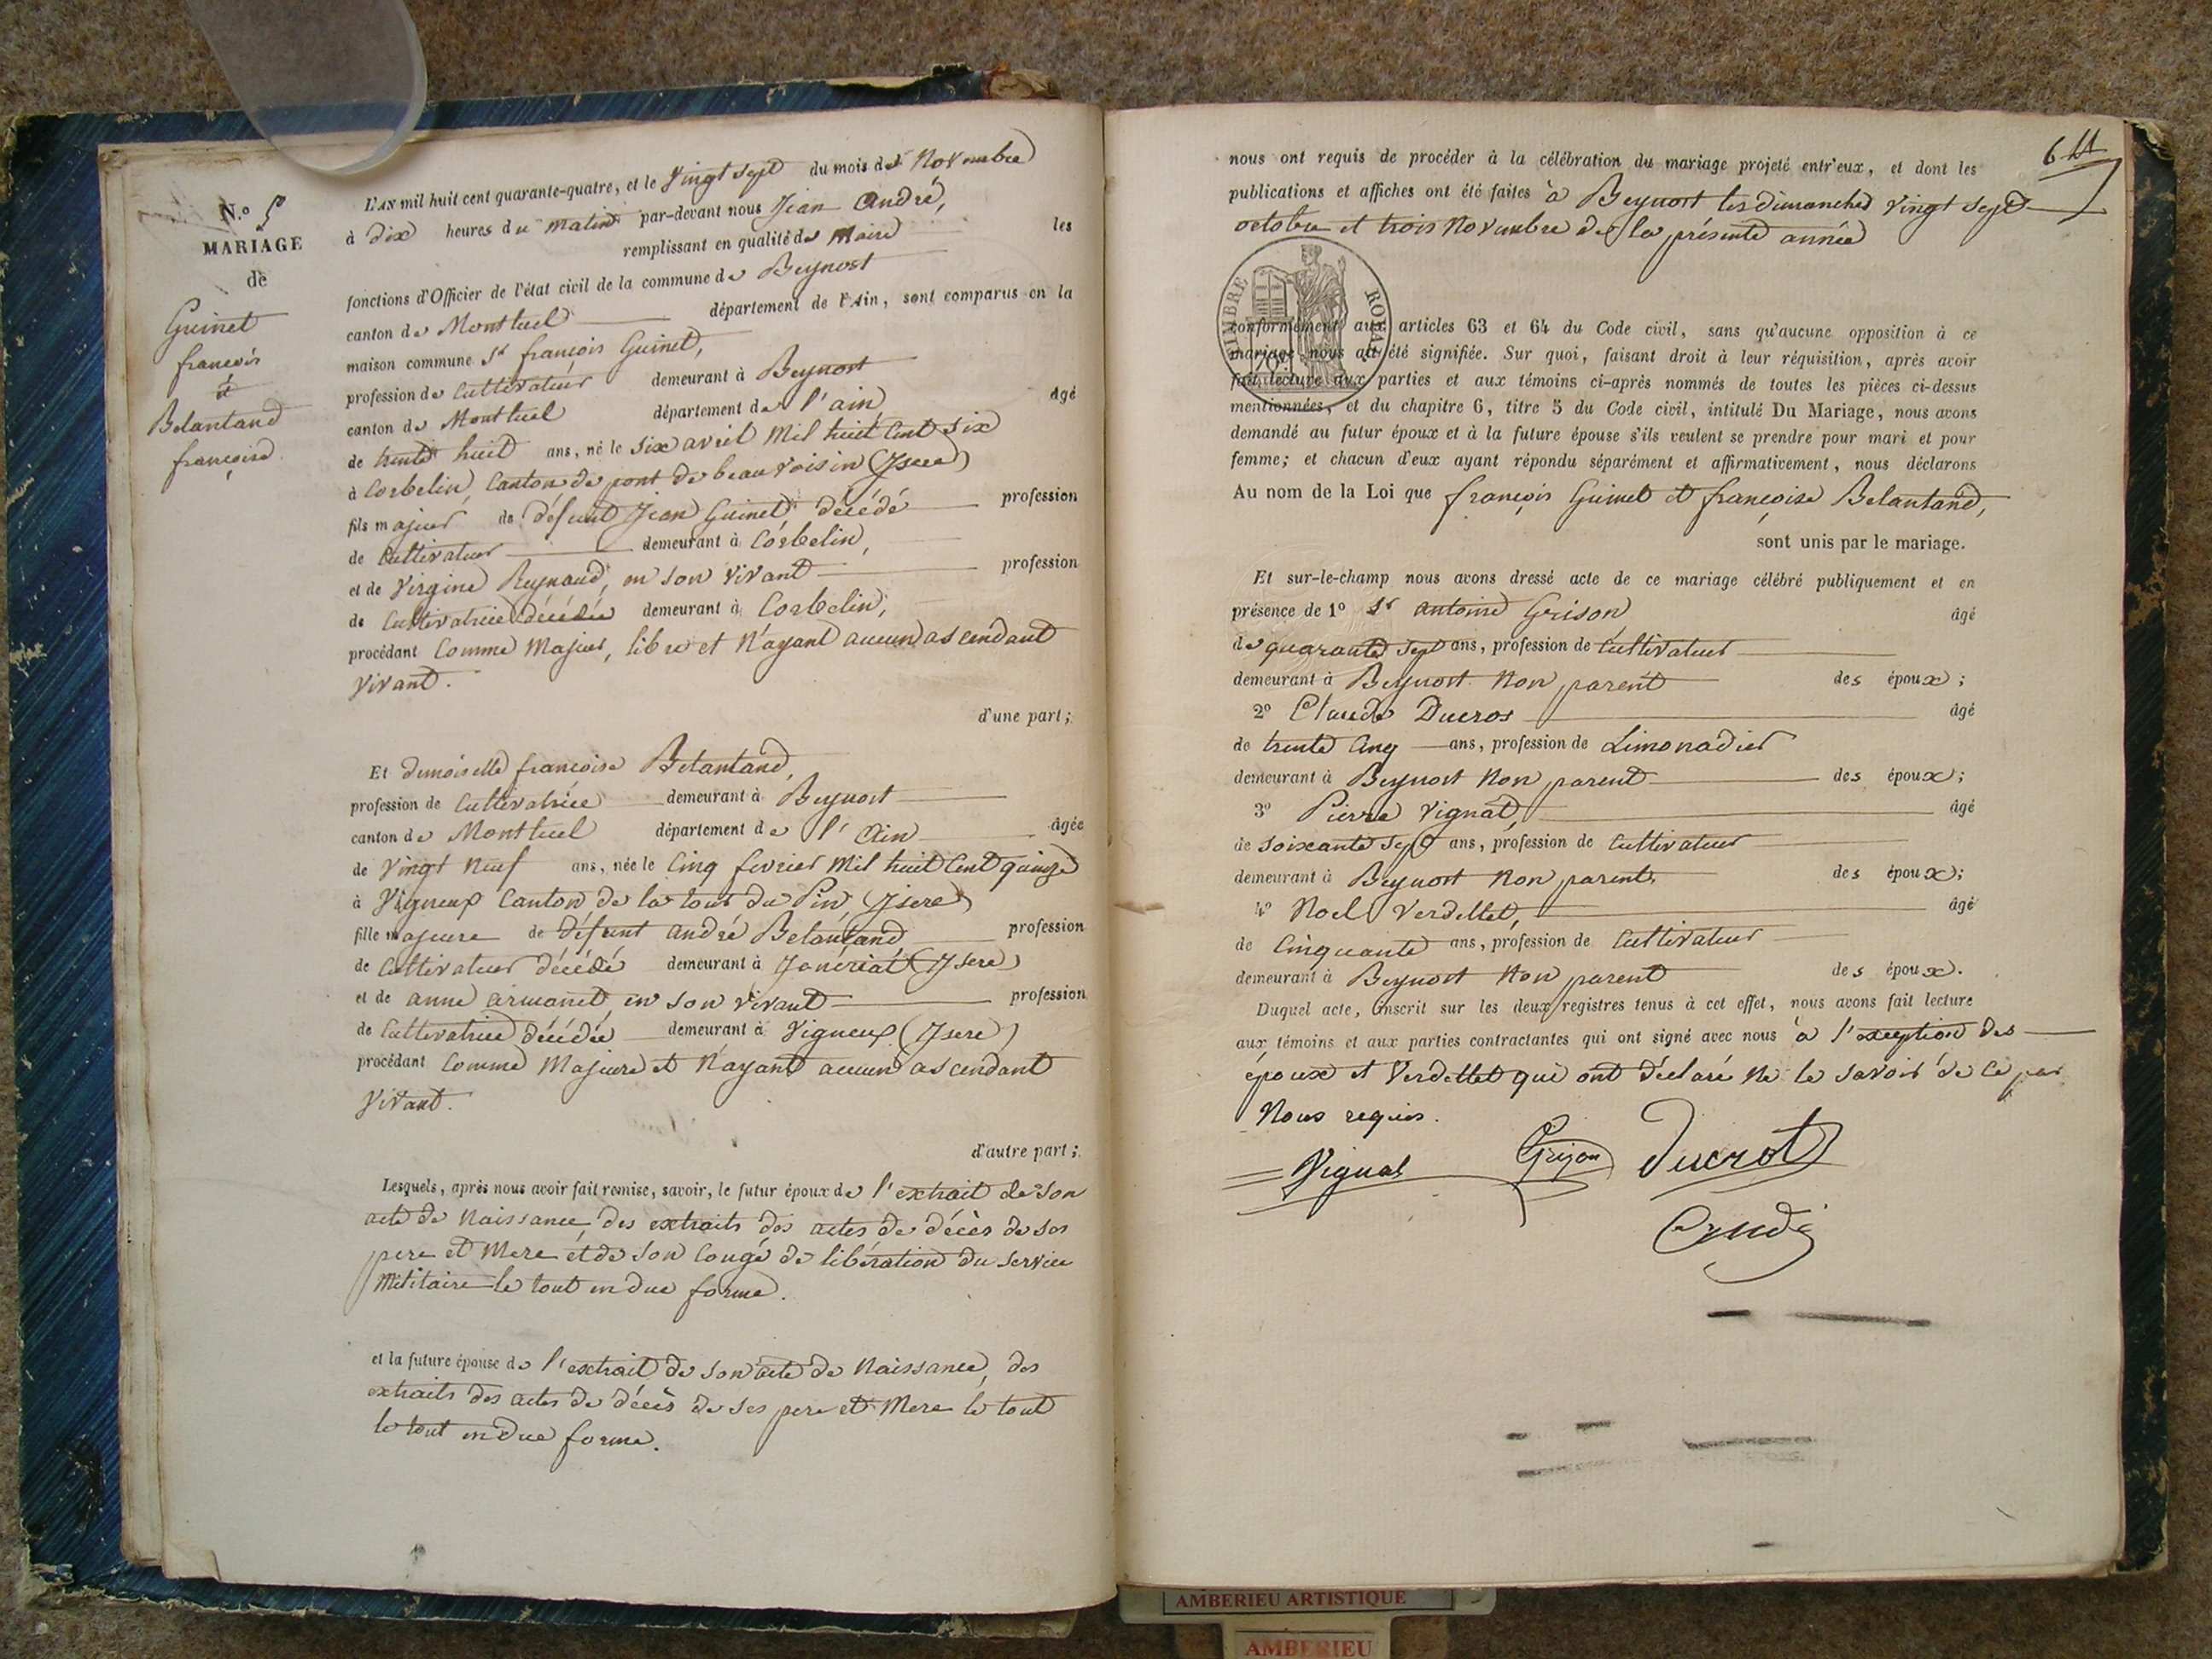 N.° 5
MARIAGE
de
Guinet
françois
et
Belantand
françoise
L'AN mil huit cent quarante-quatre, et le vingt sept du mois de Novembre
à dix heures du matin par-devant nous Jean André,
remplissant en qualité de Maire les
fonctions d'Officier de l'état civil de la commune de Beynost
canton de Montluel département de l'Ain, sont comparus en la
maison commune Sr françois Guinet,
profession de Cultivateur demeurant à Beynost
canton de Montluel département de l'ain âgé
de trente huit ans, né le six avril mil huit cent six
à Corbelin, Canton de pont de beauvoisin (Isere)
fils majeur de défunt Jean Guinet décédé profession
de Cultivateur demeurant à Corbelin,
et de Virginie Reynaud, en son vivant profession
de Cultivatrice décédée demeurant à Corbelin,
procédant Comme Majeur, libre et N'ayant aucun ascendant
vivant.
d'une part;
Et demoiselle françoise Belantand,
profession de Cultivatrice demeurant à Beynost
canton de Montluel département de l'Ain âgée
de vingt neuf ans, née le Cinq fevrier Mil huit Cent quinze
à Vigneux Canton de la tour du Pin (Isere)
fille majeure de défunt André Belantand profession
de Cultivateur décédé demeurant à (Isere)
et de anne armanet en son vivant profession
de Cultivatrice décédée demeurant à Vigneux (Isere)
procédant Comme Majeure et N'ayant aucun ascendant
Vivant.
d'autre part;
Lesquels, après nous avoir fait remise, savoir, le futur époux de l'extrait de son
acte de Naissance, des extraits des actes de décès de ses
pere et Mere et de son Congé de libération du service
Militaire le tout en due forme.
et la future épouse de l'extrait de son acte de Naissance, des
extraits des actes de décès de ses pere et Mere le tout
le tout en due forme.
6
nous ont requis de procéder à la célébration du mariage projeté entr'eux, et dont les
publications et affiches ont été faites à Beynost les dimanches vingt sept
octobre et trois Novembre de la présente année
TIMBRE ROYAL
conformément aux articles 63 et 64 du Code civil, sans qu'aucune opposition à ce
mariage nous ait été signifiée. Sur quoi, faisant droit à leur réquisition, après avoir
fait lecture aux parties et aux témoins ci-après nommés de toutes les pièces ci-dessus
mentionnées, et du chapitre 6, titre 5 du Code civil, intitulé Du Mariage, nous avons
demandé au futur époux et à la future épouse s'ils veulent se prendre pour mari et pour
femme; et chacun d'eux ayant répondu séparément et affirmativement, nous déclarons
Au nom de la Loi que françois Guinet et françoise Belantand,
sont unis par le mariage.
Et sur-le-champ nous avons dressé acte de ce mariage célébré publiquement et en
présence de 1° Sr antoine Grison âgé
de quarante sept ans, profession de Cultivateur
demeurant à Beynost Non parent des époux;
2° Claude Ducros âgé
de trente Cinq ans, profession de Limonadier
demeurant à Beynost Non parent des époux;
3° Pierre Vignat, âgé
de soixante sept ans, profession de Cultivateur
demeurant à Beynost Non parent des époux;
4° Noel Verdellet, âgé
de Cinquante ans, profession de Cultivateur
demeurant à Beynost Non parent des époux.
Duquel acte, inscrit sur les deux registres tenus à cet effet, nous avons fait lecture
aux témoins et aux parties contractantes qui ont signé avec nous à l'exception des
époux et Verdellet qui ont déclaré Ne le savoir de ce par
Nous requis.
Vignat Grison Ducrot
André
AMBERIEU ARTISTIQUE
AMBERIEU